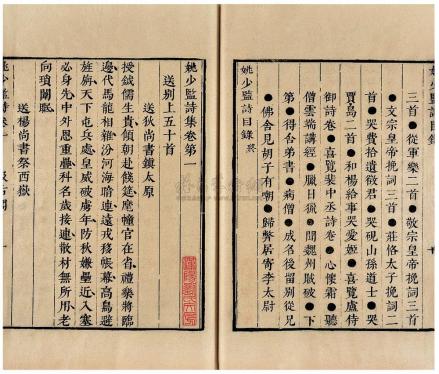 三首●從軍樂二首●敬宗皇帝挽詞三首
●文宗皇帝挽詞三首●莊恪太子挽詞二
首●哭費拾遺徵君●哭硯山孫道士●哭
賈島二首●和楊給事哭愛姬●喜覽盧侍
御詩卷●喜覽裴中丞詩卷●心懷霜●聽
僧雲端講經●臘日獵●聞魏州破賊●下
第●得台弟書●病僧●成名後留別從兄
●佛舍見胡子有嘲●歸弊居寄李太尉
姚少監詩目錄 終
姚少監詩目錄
姚少監詩集卷第一
送別上五十首
送狄尚書鎮太原
授鉞儒生貴傾朝赴餞筵麾幢官在省禮樂將臨
邊代馬龍相雜汾河海暗連遠戎移帳幕高鳥避
旌旃天下屯兵處皇威破虜年防秋嫌壘近入塞
必身先中外恩重疊科名歲接連散材無所用老
向瑣闈眠
送楊尚書祭西嶽
姚少監詩卷一